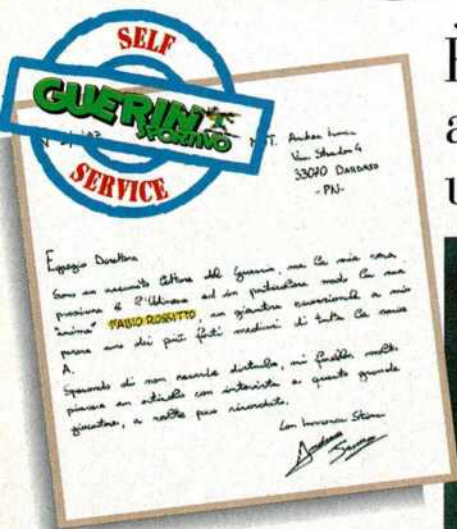 SELF
GUERIN
SPORTIVO
SERVICE
33070 DARDAGO
-PN-
Egregio Direttore
Sono un accanito lettore del Guerin, ma la mia vera
passione è l'Udinese ed in particolare modo la sua
"anima" FABIO ROSSITTO, un giocatore eccezionale a mio
parere uno dei più forti mediani di tutta la nostra
A.
Sperando di non recarle disturbo, mi farebbe molto
piacere un articolo con intervista a questo grande
giocatore, a volte poco ricordato.
Con immensa Stima